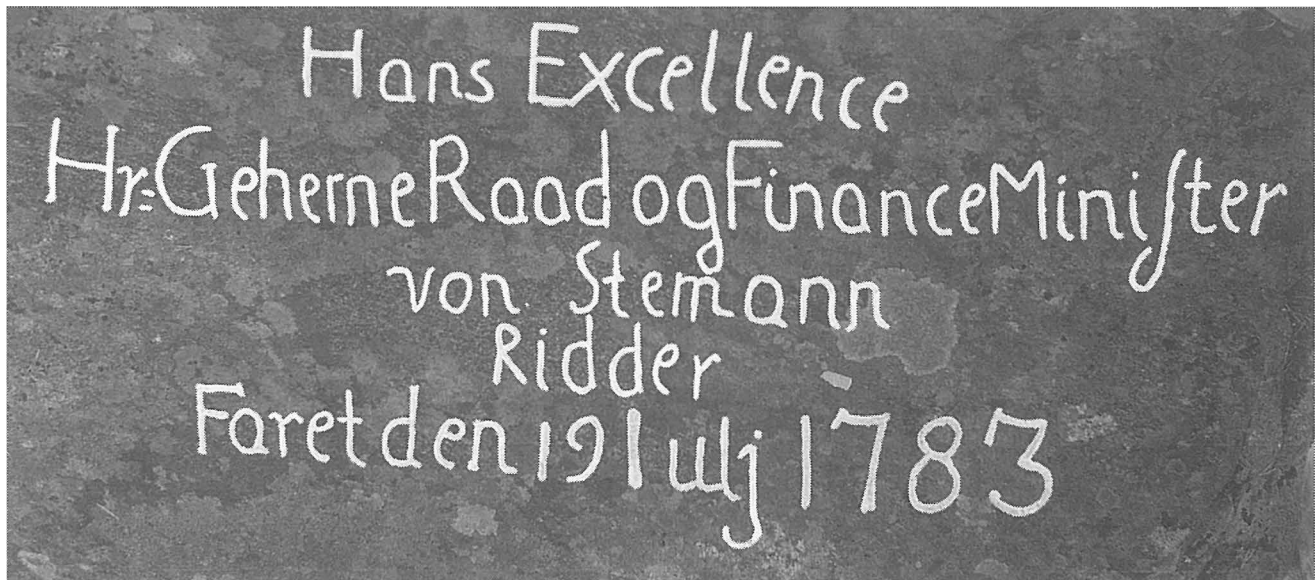 Hans Excellence
Hr=GeherneRaad og FinanceMiniſter
von Stemann
Ridder
Faret den 19 Iulj 1783